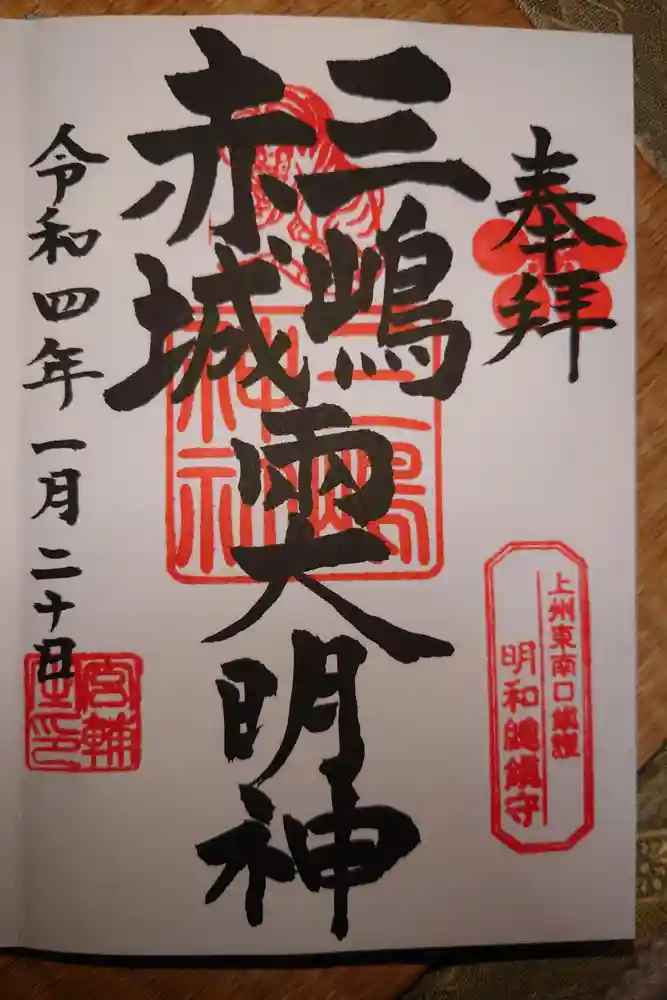 奉拝
三嶋
赤城
両大明神
令和四年一月二十日
三嶋
神社
上州東南口鎮護
明和總鎮守
宮輔
之印